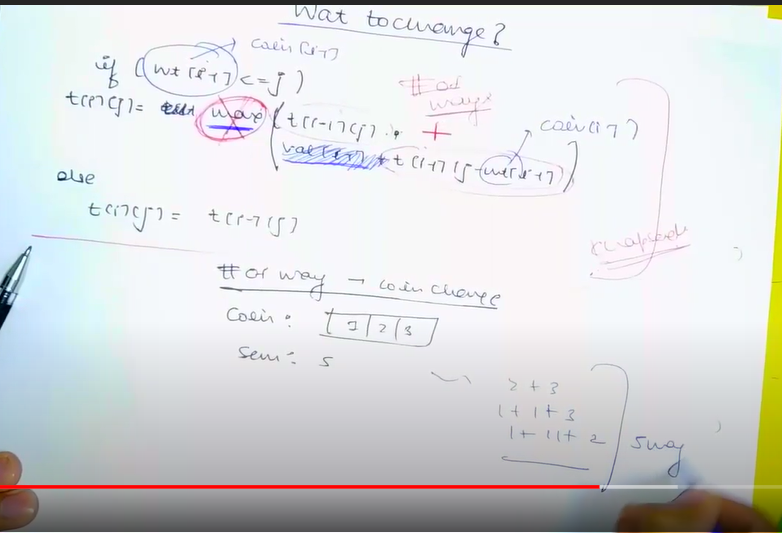 Wat to change?
coin[i-1]
if (wt[i-1] <= j)
# of ways
t[i][j] = max (t[i-1][j] +
coin[i-1]
val[i-1] + t[i-1][j-wt[i-1])
else
t[i][j] = t[i-1][j]
knapsack
# of way → coin change
Coin: 1 2 3
Sum: 5
2 + 3
1 + 1 + 3
1 + 11 + 2
5 way